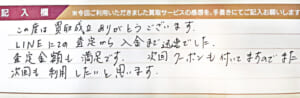 記入欄 ※今回ご利用いただきました買取サービスの感想を、手書きにてご記入お願いします
この度は買取成立ありがとうございます。
LINEでの査定から入金まで迅速でした。
査定金額も満足です。次回クーポンも付いてますのでまた
次回も利用したいと思います。